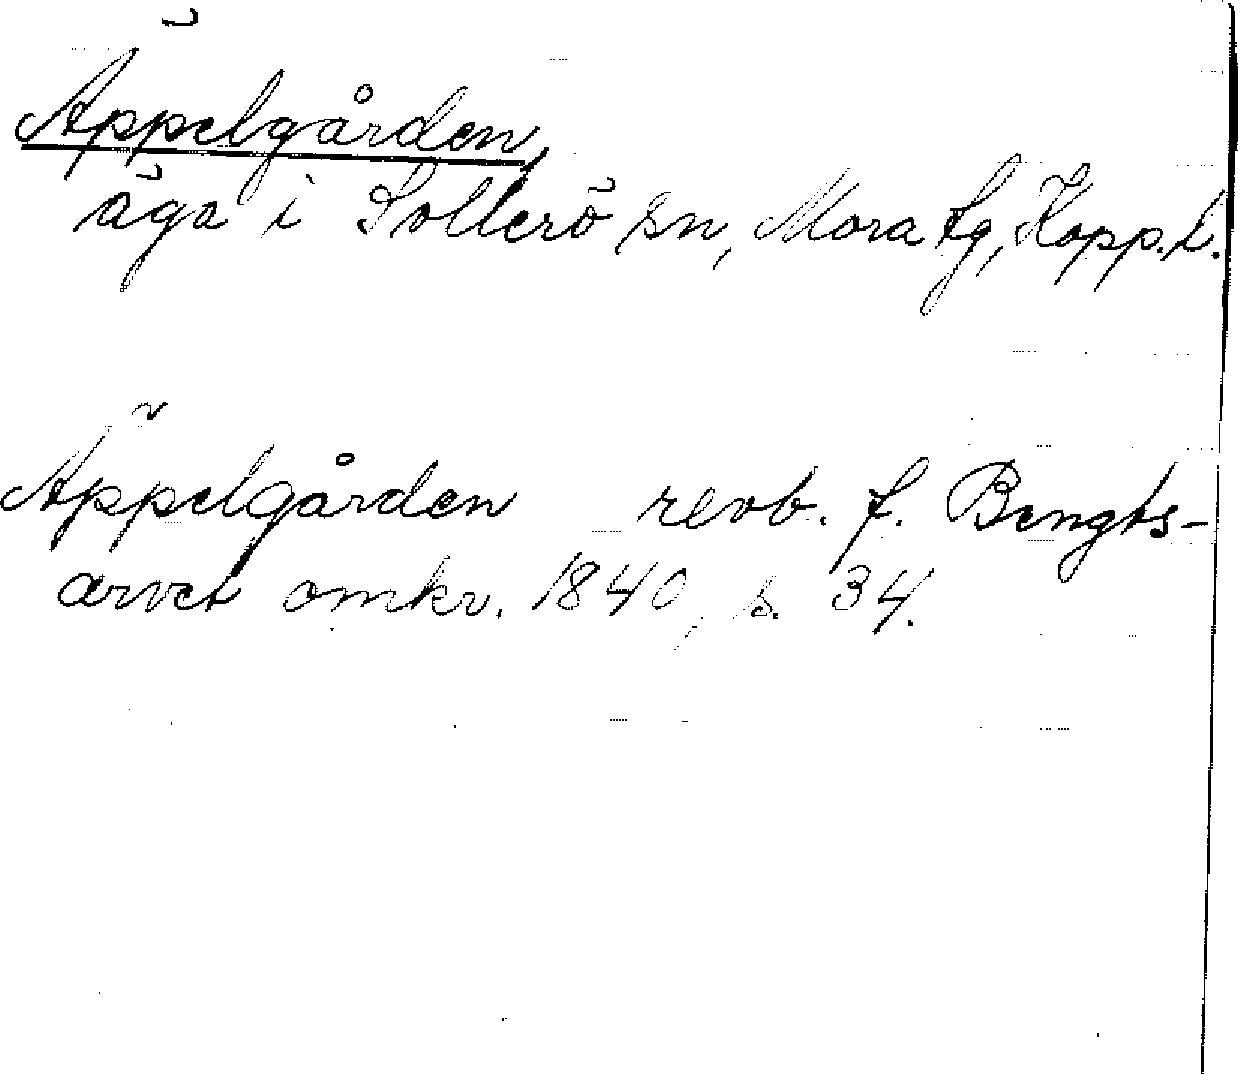 Äppelgården,
äga i Sollerö sn, Mora tg, Kopp. l.
Äppelgården revb. f. Bengts-
arvet omkr. 1840, s. 34.